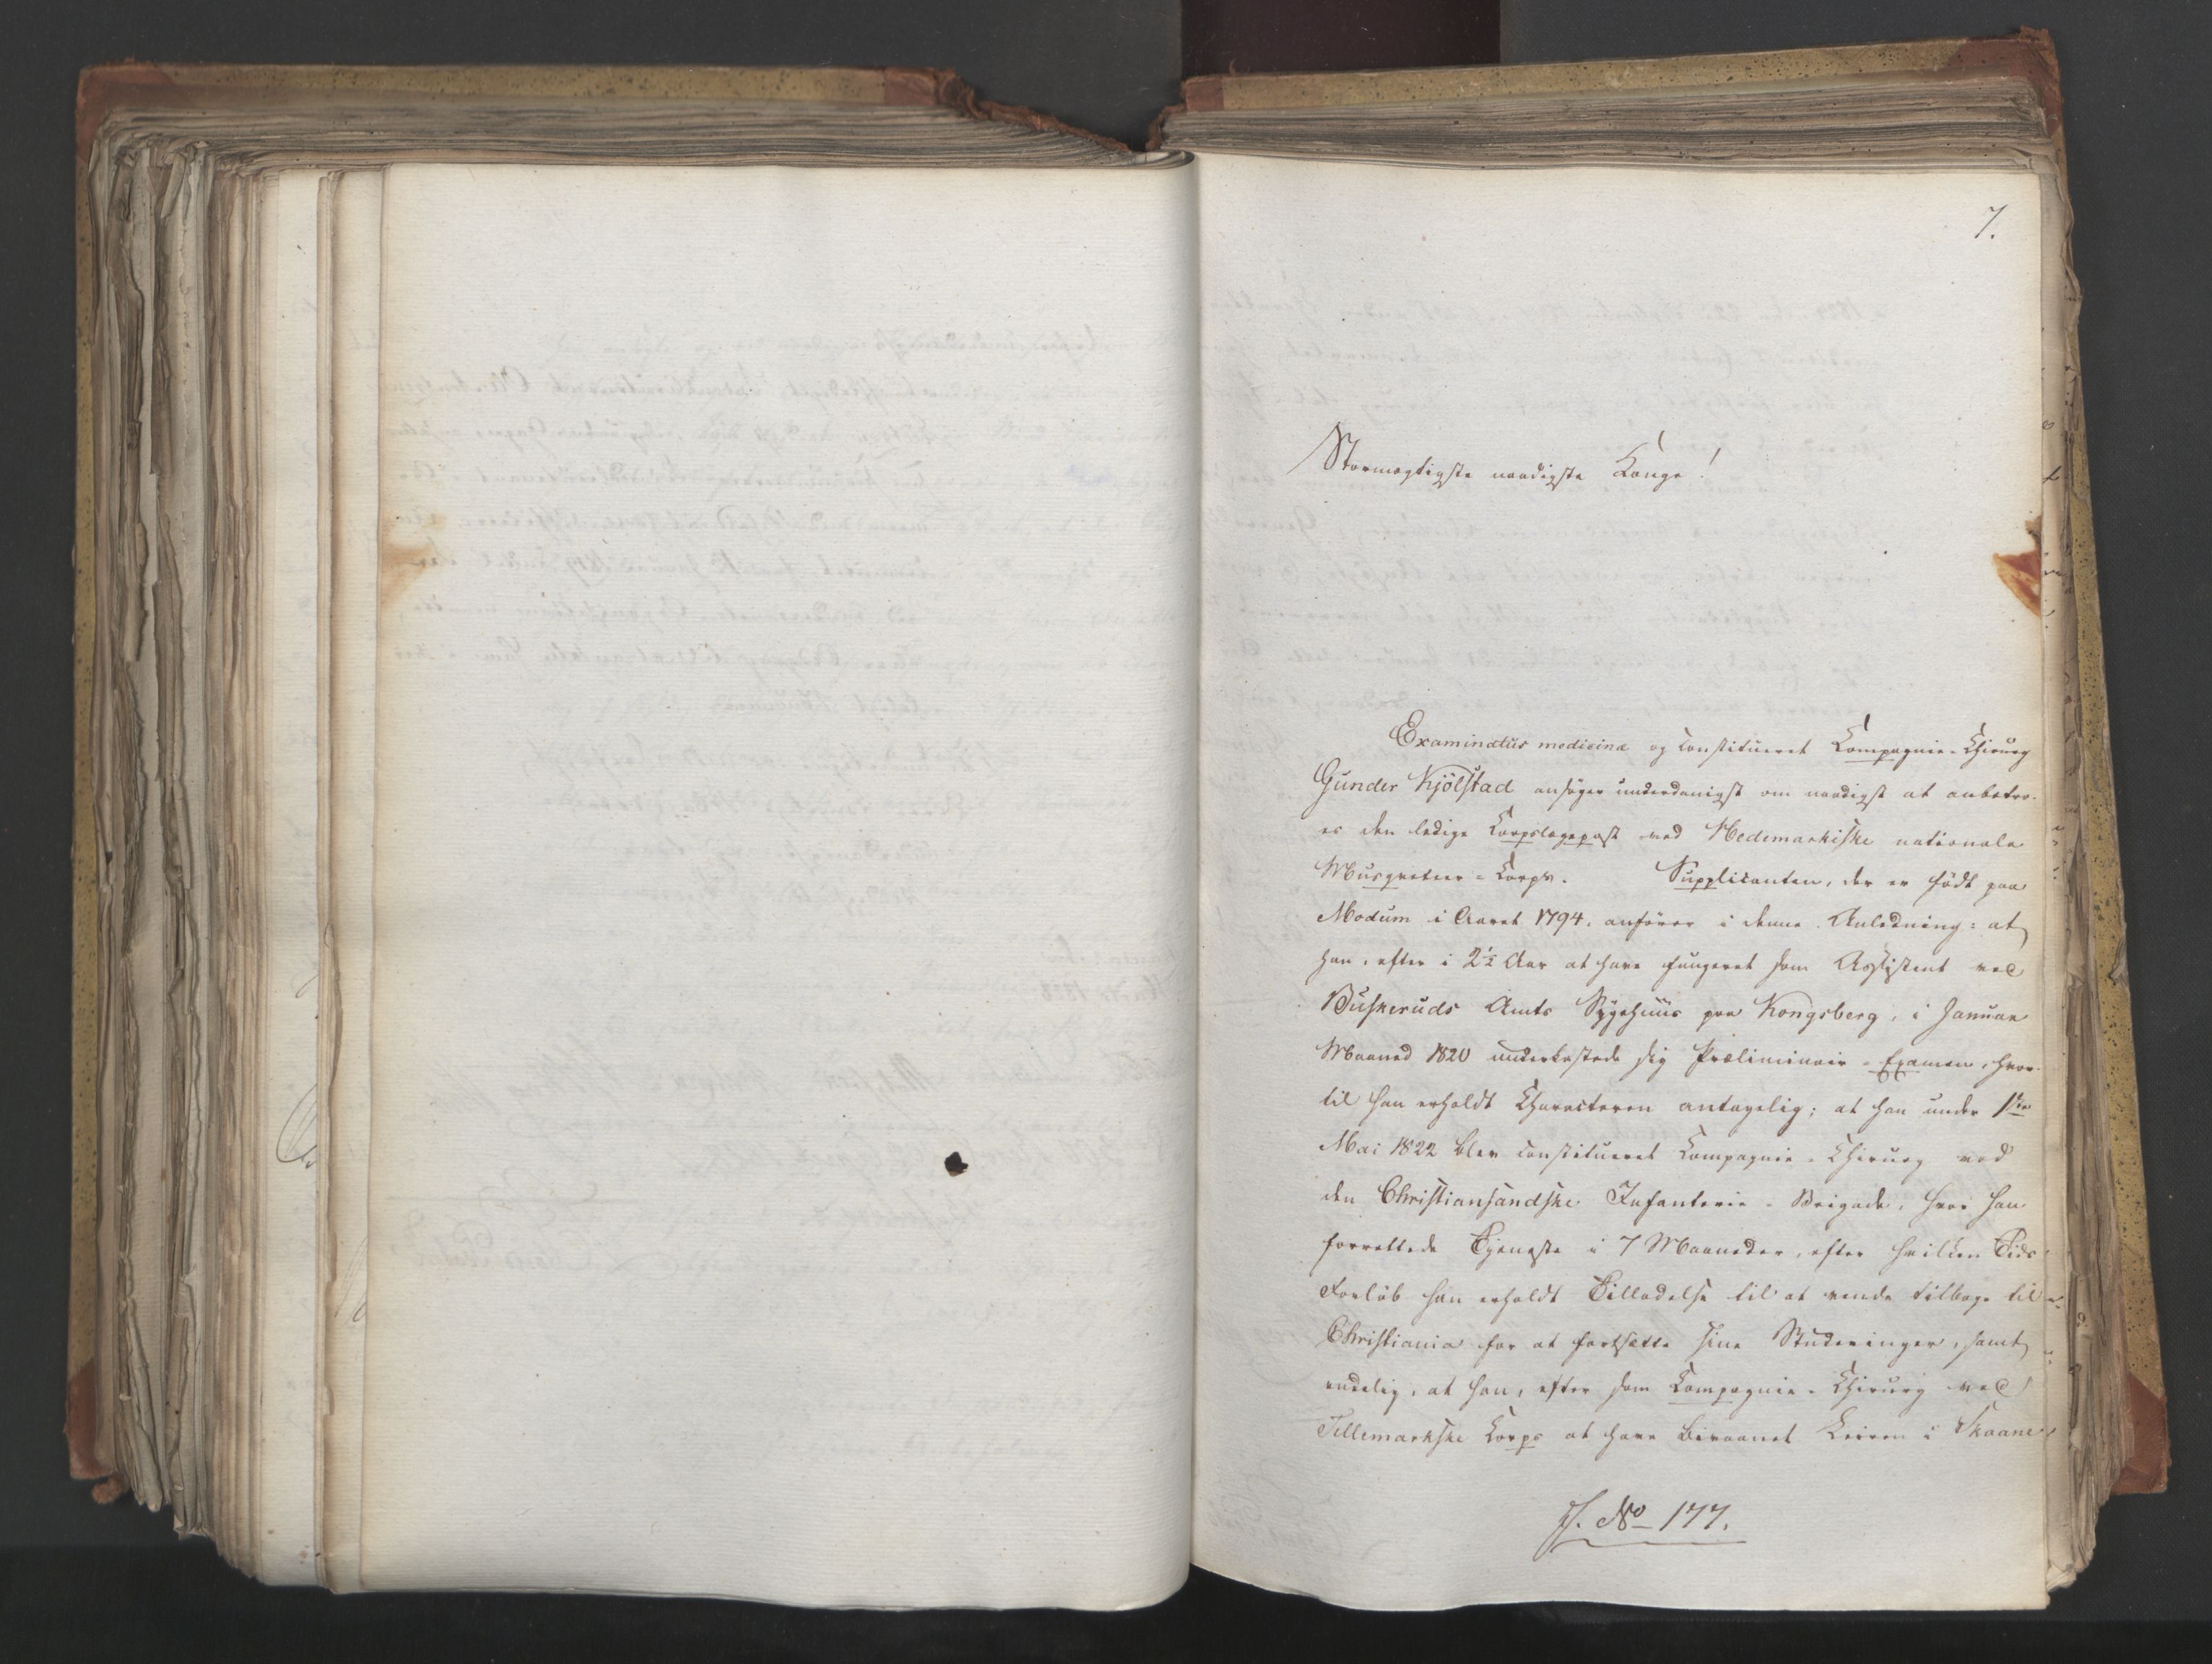 7.
Stormægtigste naadigste Konge!
Examinatus medicinæ og constitueret Compagnie-Chirurg
Gunder Kjölstad ansøger underdanigst om naadigst at anbetro-
es den ledige Corpslægepost ved Hedemarkiske nationale
Musqueteer-Corps. Supplicanten, der er födt paa
Modum i Aaret 1794, anförer i denne Anledning: at
han, efter i 2½ Aar at have fungeret som Assistent ved
Buskeruds Amts Sygehuus paa Kongsberg, i Januar
Maaned 1820 underkastede sig Præliminair-Examen, hvor-
til han erholdt Characteren antagelig; at han under 1ste
Mai 1822 blev constitueret Compagnie-Chirurg ved
den Christiansandske Infanterie-Brigade, hvor han
forrettede Tjeneste i 7 Maaneder, efter hvilken Tids
Forlöb han erholdt Tilladelse til at vende tilbage til
Christiania for at fortsætte sine Studeringer, samt
endelig, at han, efter som Compagnie-Chirurg ved
Tellemarkske Corps at have bivaanet Leiren i Skaane
J. No 177.